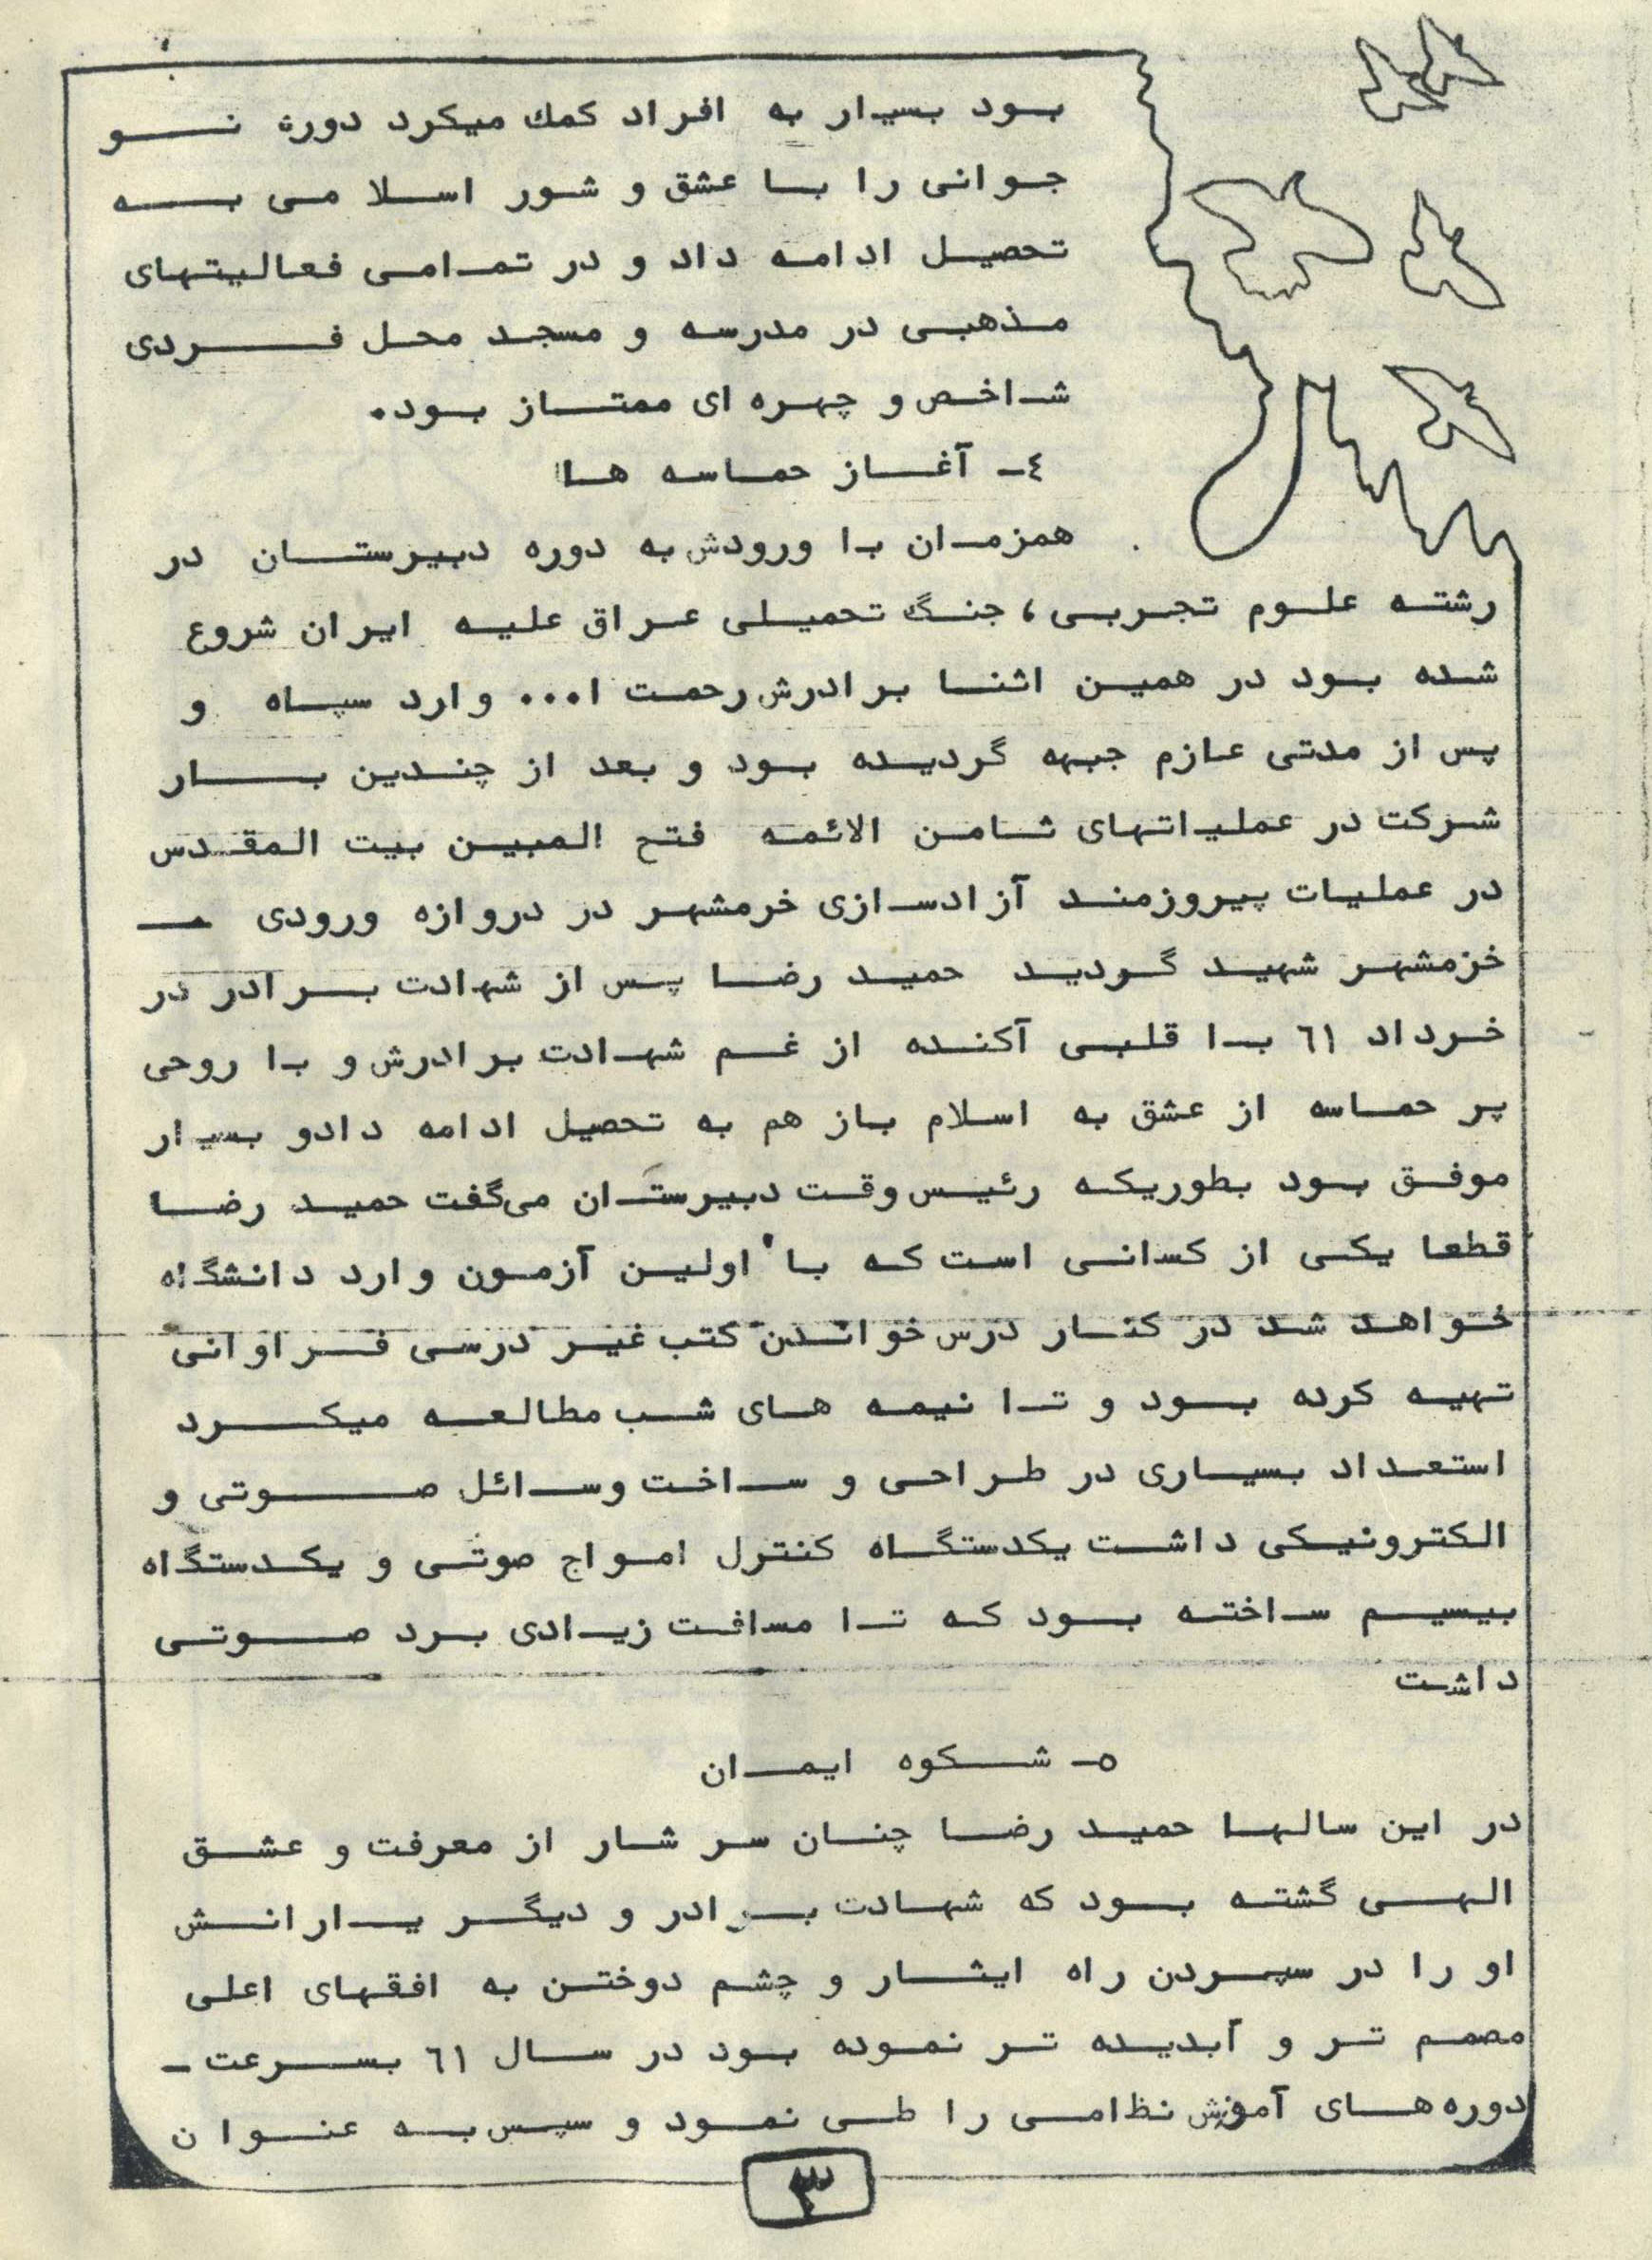 بود بسیار به افراد کمك میکرد دوره نو
جوانی را با عشق و شور اسلا می به
تحصیل ادامه داد و در تمامی فعالیتهای
مذهبی در مدرسه و مسجد محل فردی
شاخص و چهره ای ممتاز بود.
٤- آغاز حماسه ها
همزمان با ورودش به دوره دبیرستان در
رشته علوم تجربی، جنگ تحمیلی عراق علیه ایران شروع
شده بود در همین اثنا برادرش رحمت ا... وارد سپاه و
پس از مدتی عازم جبهه گردیده بود و بعد از چندین بار
شرکت در عملیاتهای ثامن الائمه فتح المبین بیت المقدس
در عملیات پیروزمند آزادسازی خرمشهر در دروازه ورودی -
خزمشهر شهید گردید حمید رضا پس از شهادت برادر در
خرداد ٦١ با قلبی آکنده از غم شهادت برادرش و با روحی
پر حماسه از عشق به اسلام باز هم به تحصیل ادامه دادو بسیار
موفق بود بطوریکه رئیس وقت دبیرستان می‌گفت حمید رضا
قطعا یکی از کسانی است که با اولین آزمون وارد دانشگاه
خواهد شد در کنار درس خواندن کتب غیر درسی فراوانی
تهیه کرده بود و تا نیمه های شب مطالعه میکرد
استعداد بسیاری در طراحی و ساخت وسائل صوتی و
الکترونیکی داشت یکدستگاه کنترل امواج صوتی و یکدستگاه
بیسیم ساخته بود که تا مسافت زیادی برد صوتی
داشت
٥- شکوه ایمان
در این سالها حمید رضا چنان سر شار از معرفت و عشق
الهی گشته بود که شهادت برادر و دیگر یارانش
او را در سپردن راه ایثار و چشم دوختن به افقهای اعلی
مصمم تر و آبدیده تر نموده بود در سال ٦١ بسرعت -
دوره های آموزش نظامی را طی نمود و سپس به عنوان
۳